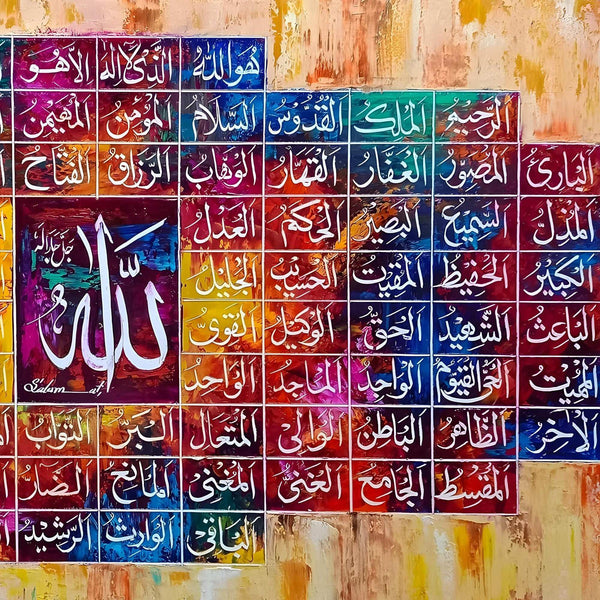 هو الله الذي لا إله الا هو
الرحيم الملك القدوس السلام المؤمن المهيمن
البارئ المصور الغفار القهار الوهاب الرزاق الفتاح
المذل السميع البصير الحكم العدل
الكبير الحفيظ المقيت الحسيب الجليل
الباعث الشهيد الحق الوكيل القوي
المميت الحي القيوم الواجد الماجد الواحد
الله جل جلاله
Salum_art
الآخر الظاهر الباطن الوالي المتعال البر التواب
المقسط الجامع الغني المغني المانع الضار
الباقي الوارث الرشيد